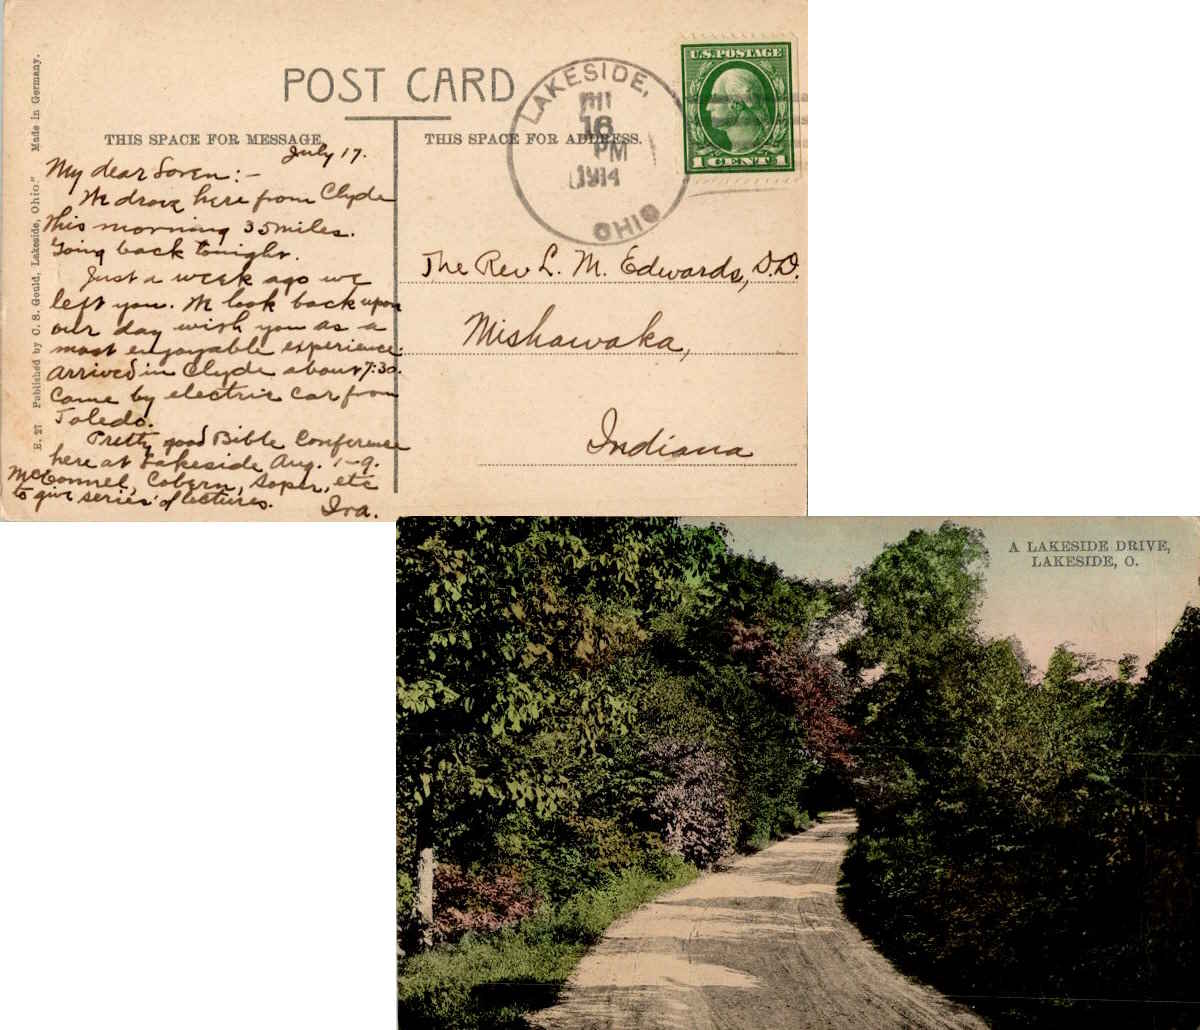 POST CARD
THIS SPACE FOR MESSAGE.
THIS SPACE FOR ADDRESS.
July 17.
My dear Loren:-
We drove here from Clyde
this morning 35 miles.
Going back tonight.
Just a week ago we
left you. We look back upon
our day with you as a
most enjoyable experience.
Arrived in Clyde about 7:30.
Came by electric car from
Toledo.
Pretty good Bible Conference
here at Lakeside Aug. 1-9.
McConnel, Cobern, Soper, etc
to give series of lectures.
Ira.
LAKESIDE,
16
PM
1914
OHIO
U.S. POSTAGE
1 CENT 1
The Rev L. M. Edwards, D.D.
Mishawaka,
Indiana
E. 27 Published by C. S. Gould, Lakeside, Ohio." Made in Germany.
A LAKESIDE DRIVE,
LAKESIDE, O.